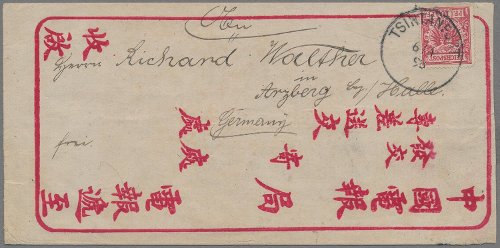 An
Herrn Richard Walther
in
Arzberg by/ Halle.
Germany
frei.
TSINTAN
6
98
收啟
中國電報局
寄
發交
專差送交
電報遞至
處
處